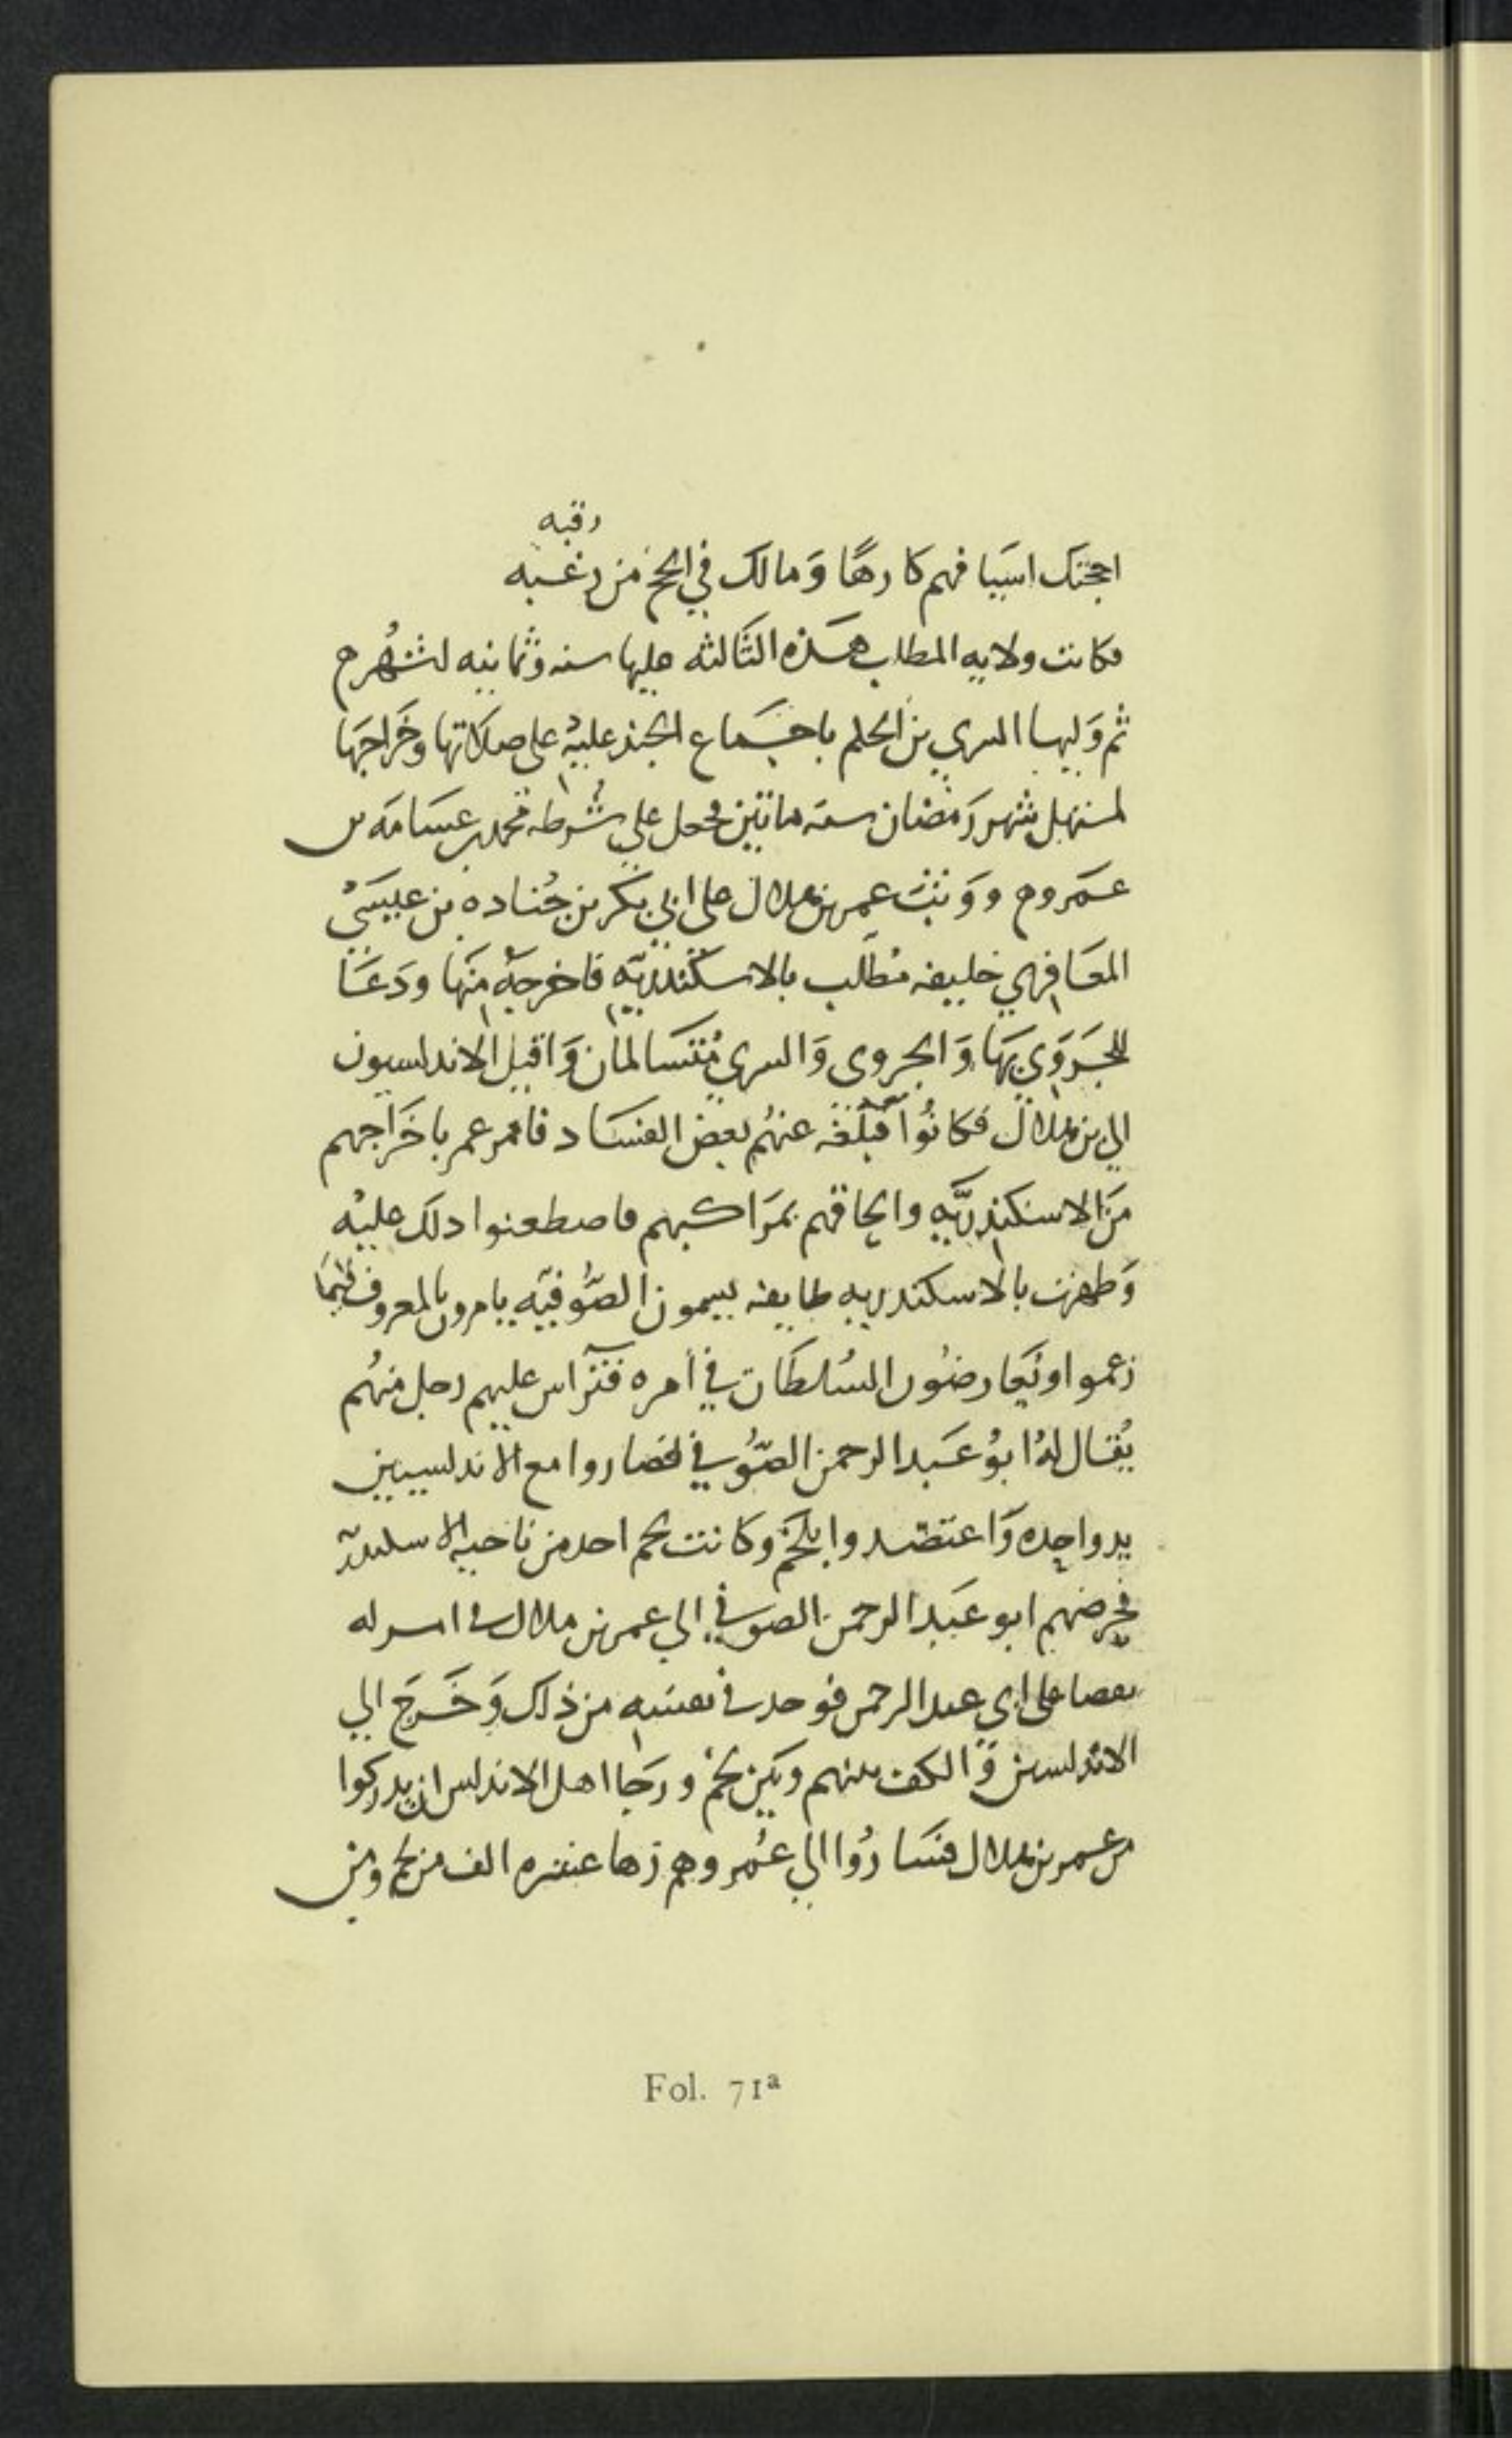 رقبه
اجتك اسيافهم كارهًا وَمالك في الحج من رغبه
فكانت ولايه المطلب هذه الثالثه عليها سنه وثمانيه اشهُر م
ثم وَليها السري بن الحكم باجماع الجند عليْه على صلاتها وخَراجَها
لمستهل شهر رَمضان سنة مائتين فجعل على شُرطه محمد بن عسَامَه بن
عَمرو م ووَثبَ عمر بن هلال على ابي بكر بن جُناده بن عيسَىْ
المعَافري خليفه مُطلَب بالاسكندريّه فاخرجهْ منَها ودَعَا
للجَرَوَي بهَا وَالجروى وَالسري مُتسَالمان وَاقبل الاندلسيون
الي بن هلال فكانُوا فبلغه عنهُم بعض الفسَاد فامر عمر باخَراجهم
مَن الاسكندريَّه والحاقهم بمَراكبهم فاصطغنوا دلكَ عليْه
وَظهرت بالاسكندريه طايفه يسمون الصُّوفيّه يامرون بالمعروف فيمَا
زعموا ويُعارضُون السُلطَان في أمره فترٓاس عليهم رجل منهُم
يُقال لهُ ابوُ عَبد الرحمن الصُّوفي فصاروا مع الاندلسيين
يد واحِده وَاعتضدوا بلخَم وكانت لخم احد من ناحيه الاسكندريه
فخرضهم ابو عَبد الرحمن الصوفي الي عمر بن هلال في امر له
فقصا على ابي عبد الرحمن فوجد في نفسِه من ذلك وَخَرجَ الي
الاندلسين وَالف بينهم وبَين لخمْ ورجَا اهل الاندلس ان يدركوا
من عمر بن هلال فسَارُوا الي عُمر وهم زها عشره الف من لخم ومن
Fol. 71ª